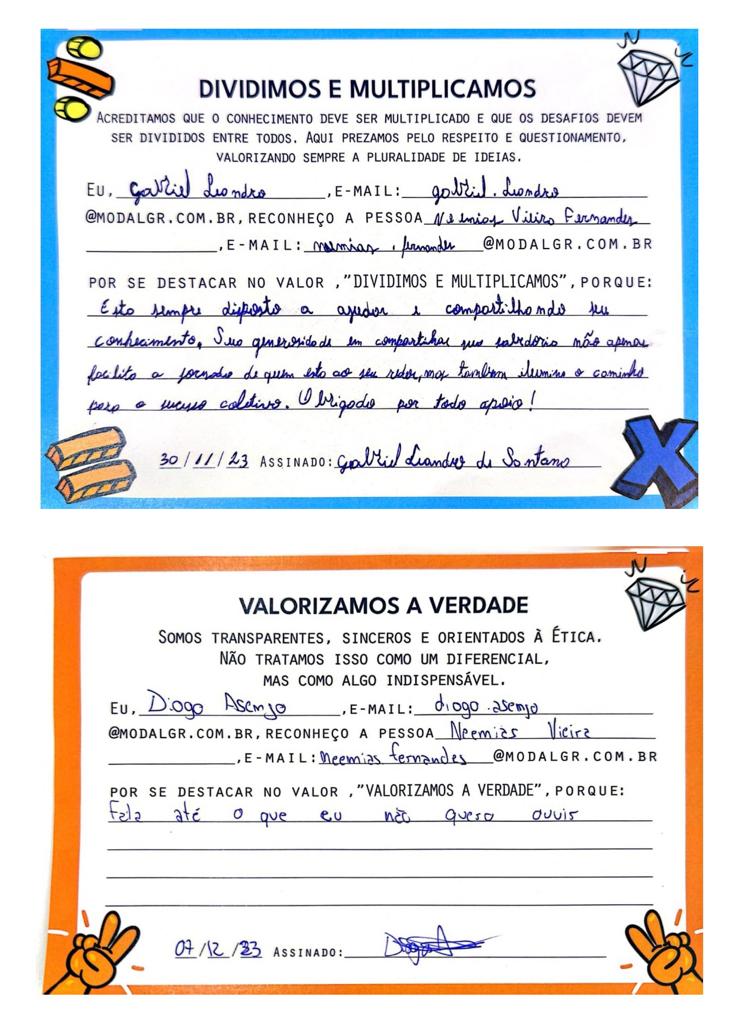 DIVIDIMOS E MULTIPLICAMOS
ACREDITAMOS QUE O CONHECIMENTO DEVE SER MULTIPLICADO E QUE OS DESAFIOS DEVEM
SER DIVIDIDOS ENTRE TODOS. AQUI PREZAMOS PELO RESPEITO E QUESTIONAMENTO,
VALORIZANDO SEMPRE A PLURALIDADE DE IDEIAS.
EU, Gabriel Leandro, E-MAIL: gabriel.leandro
@MODALGR.COM.BR, RECONHEÇO A PESSOA Neemias Vieira Fernandes
, E-MAIL: neemias.fernandes @MODALGR.COM.BR
POR SE DESTACAR NO VALOR ,"DIVIDIMOS E MULTIPLICAMOS", PORQUE:
Esta sempre disposto a ajudar e compartilhando seu
conhecimento. Sua generosidade em compartilhar sua sabedoria não apenas
facilita a jornada de quem esta ao seu redor, mas tambem ilumina o caminho
para o sucesso coletivo. Obrigado por todo apoio!
30/11/23 ASSINADO: Gabriel Leandro de Santana
VALORIZAMOS A VERDADE
SOMOS TRANSPARENTES, SINCEROS E ORIENTADOS À ÉTICA.
NÃO TRATAMOS ISSO COMO UM DIFERENCIAL,
MAS COMO ALGO INDISPENSÁVEL.
EU, Diogo Asenjo, E-MAIL: diogo.asenjo
@MODALGR.COM.BR, RECONHEÇO A PESSOA Neemias Vieira
, E-MAIL: neemias fernandes @MODALGR.COM.BR
POR SE DESTACAR NO VALOR ,"VALORIZAMOS A VERDADE", PORQUE:
Fala até o que eu não quero ouvir
07/12/23 ASSINADO: